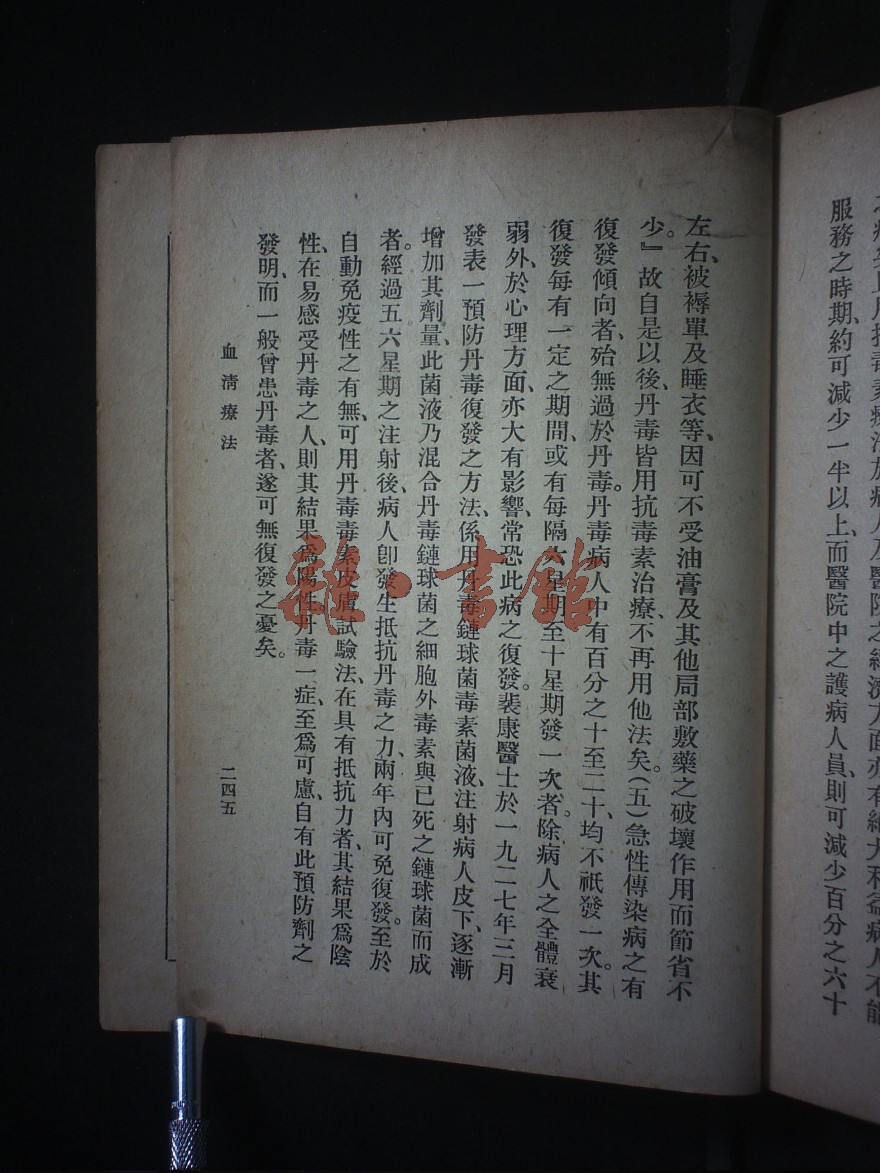 服務之時期、約可減少一半以上、而醫院中之護病人員、則可減少百分之六十
左右、被褥單及睡衣等、因可不受油膏及其他局部敷藥之破壞作用而節省不
少。』故自是以後、丹毒皆用抗毒素治療、不再用他法矣。(五)急性傳染病之有
復發傾向者、殆無過於丹毒。丹毒病人中有百分之十至二十、均不祇發一次。其
復發每有一定之期間、或有每隔六星期至十星期發一次者、除病人之全體衰
弱外、於心理方面、亦大有影響、常恐此病之復發。裴康醫士於一九二七年三月
發表一預防丹毒復發之方法、係用丹毒鏈球菌毒素菌液、注射病人皮下、逐漸
增加其劑量、此菌液乃混合丹毒鏈球菌之細胞外毒素與已死之鏈球菌而成
者。經過五六星期之注射後、病人卽發生抵抗丹毒之力、兩年內可免復發。至於
自動免疫性之有無、可用丹毒毒素皮膚試驗法、在具有抵抗力者、其結果爲陰
性、在易感受丹毒之人、則其結果爲陽性。丹毒一症、至爲可慮、自有此預防劑之
發明、而一般曾患丹毒者、遂可無復發之憂矣。
血清療法
二四五
雜·書館